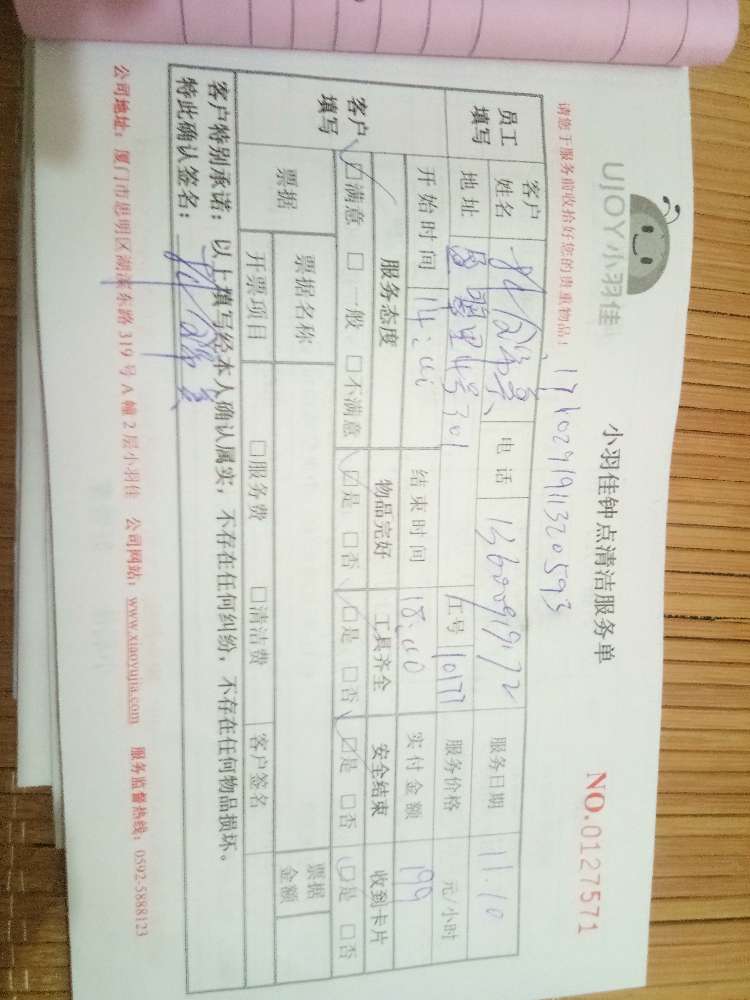 UJOY小羽佳
小羽佳钟点清洁服务单
NO.0127571
请您于服务前收拾好您的贵重物品!
员工填写 客户姓名 电话 服务日期 11.10
地址 301 工号 10177 服务价格 元/小时
开始时间 14:00 结束时间 18:00 实付金额 199
客户填写 服务态度 物品完好 工具齐全 安全结束 收到卡片
☑满意 □一般 □不满意 ☑是 □否 ☑是 □否 ☑是 □否 ☑是 □否
票据 票据名称 票据金额
开票项目 □服务费 □清洁费 客户签名
客户特别承诺:以上填写经本人确认属实,不存在任何纠纷,不存在任何物品损坏。
特此确认签名:
公司地址:厦门市思明区湖滨东路319号A幢2层小羽佳 公司网站:www.xiaoyujia.com 服务监督热线:0592-5888123